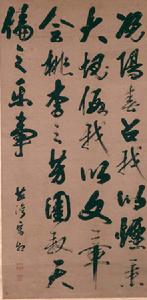 况陽春召我以煙景
大塊假我以文章
会桃李之芳園叙天
倫之樂事